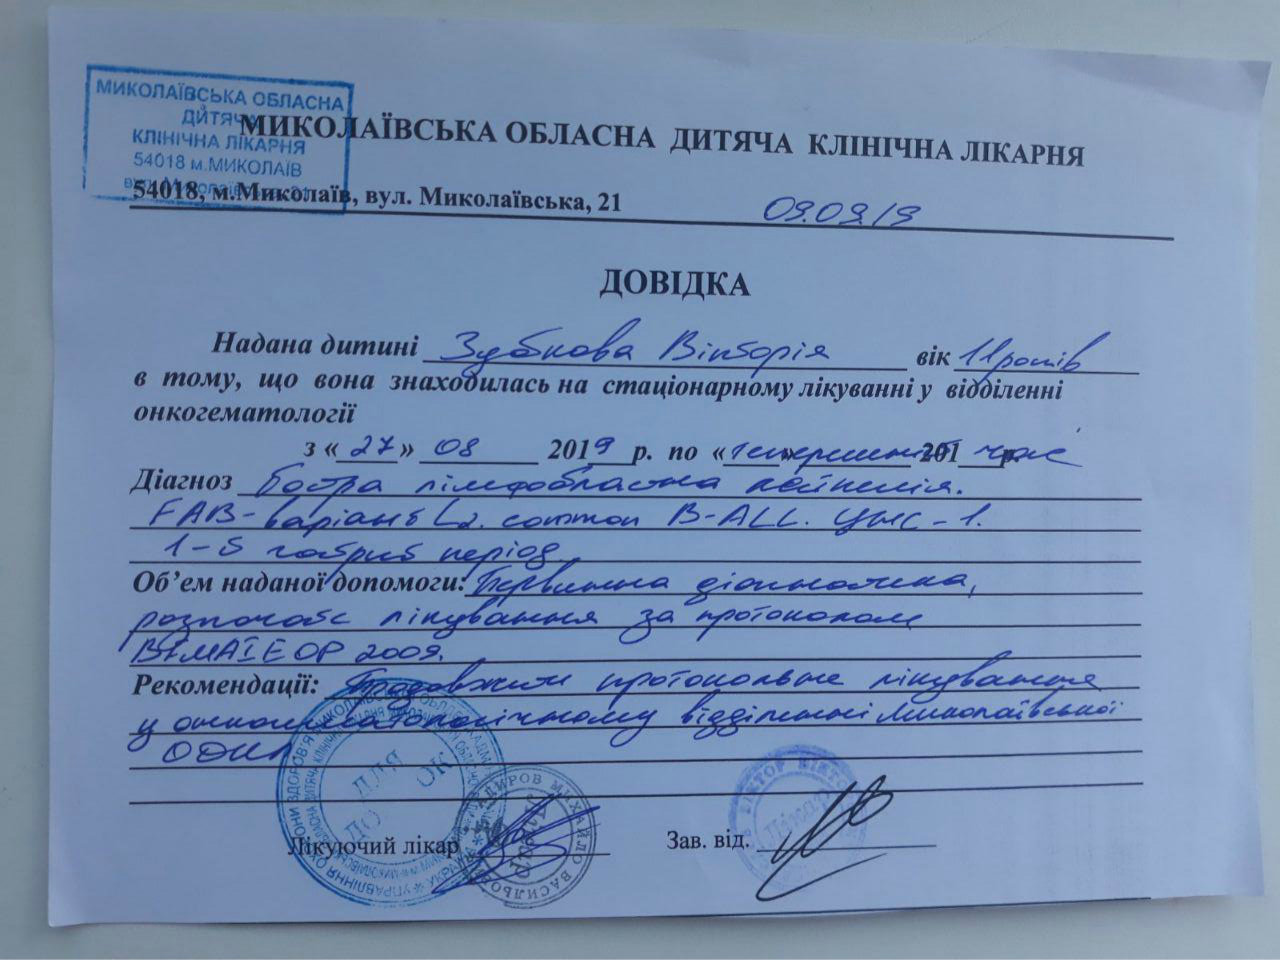 МИКОЛАЇВСЬКА ОБЛАСНА
ДИТЯЧА
КЛІНІЧНА ЛІКАРНЯ
54018 м.МИКОЛАЇВ
МИКОЛАЇВСЬКА ОБЛАСНА ДИТЯЧА КЛІНІЧНА ЛІКАРНЯ
54018, м.Миколаїв, вул. Миколаївська, 21 09.09.19
ДОВІДКА
Надана дитині Зубкова Вікторія вік 11 років
в тому, що вона знаходилась на стаціонарному лікуванні у відділенні
онкогематології
з «27» 08 2019 р. по «теперішній час» 201 р.
Діагноз Гостра лімфобластна лейкемія.
FAB-варіант L2. common B-ALL. ЦНС-1.
1-й гострий період
Об’єм наданої допомоги: Первинна діагностика,
розпочате лікування за протоколом
2009.
Рекомендації: Продовжити протокольне лікування
у онкогематологічному відділенні Миколаївської
ОДКЛ
ДЛЯ
ДО ОК
Лікуючий лікар
Зав. від.
МИХАЙЛО ВАСИЛЬОВИЧ
ЛІКАР
ВІКТОР